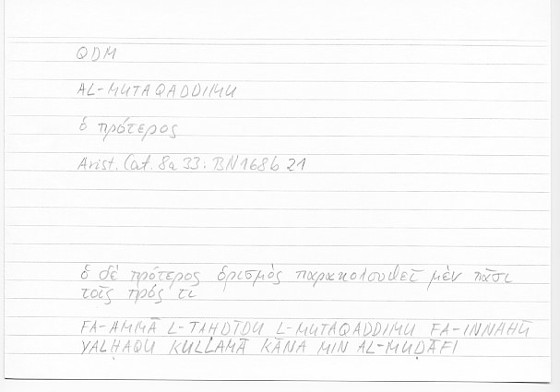 QDM
AL-MUTAQADDIMU
ὁ πρότερος
Arist. Cat. 8a 33: BN 168b 21
ὁ δὲ πρότερος ὁρισμὸς παρακολουθεῖ μὲν πᾶσι
τοῖς πρός τι
FA-AMMĀ L-TAḤDĪDU L-MUTAQADDIMU FA-INNAHŪ
YALḤAQU KULLAMĀ KĀNA MIN AL-MUḌĀFI